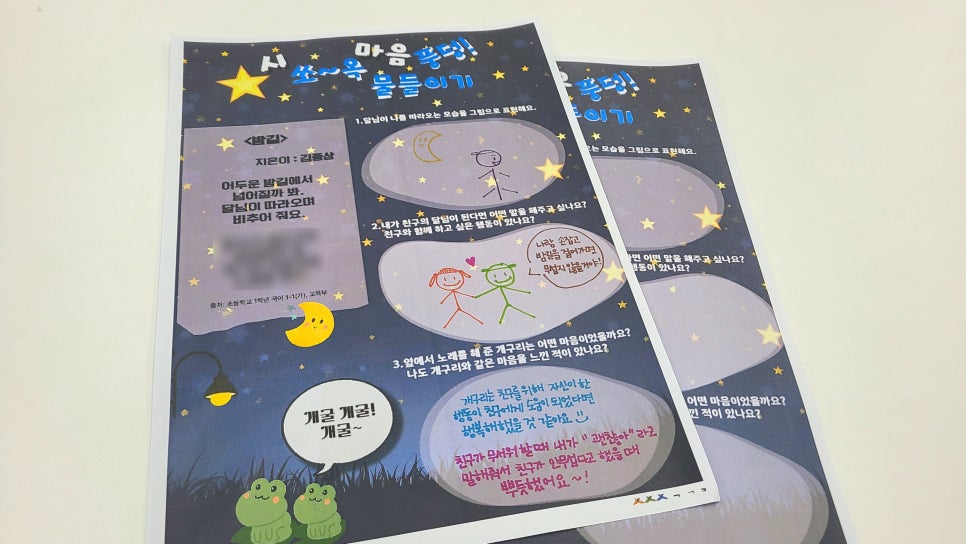 시 마음 풍덩!
쏘~옥 물들이기
<밤길>
지은이 : 김종상
어두운 밤길에서
넘어질까 봐.
달님이 따라오며
비추어 줘요.
출처: 초등학교 1학년 국어 1-1(가), 교육부
1.달님이 나를 따라오는 모습을 그림으로 표현해요.
2.내가 친구의 달님이 된다면 어떤 말을 해주고 싶나요?
친구와 함께 하고 싶은 행동이 있나요?
나랑 손잡고
밤길을 걸어가면
무섭지 않을거야!
3.옆에서 노래를 해 준 개구리는 어떤 마음이었을까요?
나도 개구리와 같은 마음을 느낀 적이 있나요?
개구리는 친구를 위해 자신이 한
행동이 친구에게 도움이 되었다면
행복해했을 것 같아요
친구가 무서워 할 때 내가 "괜찮아"라고
말해줘서 친구가 안무섭다고 했을 때
뿌듯했어요~!
개굴 개굴!
개굴~
풍덩!
들이기
오는 모습을 그림으로 표현해요.
다면 어떤 말을 해주고 싶나요?
행동이 있나요?
어떤 마음이었을까요?
낀 적이 있나요?